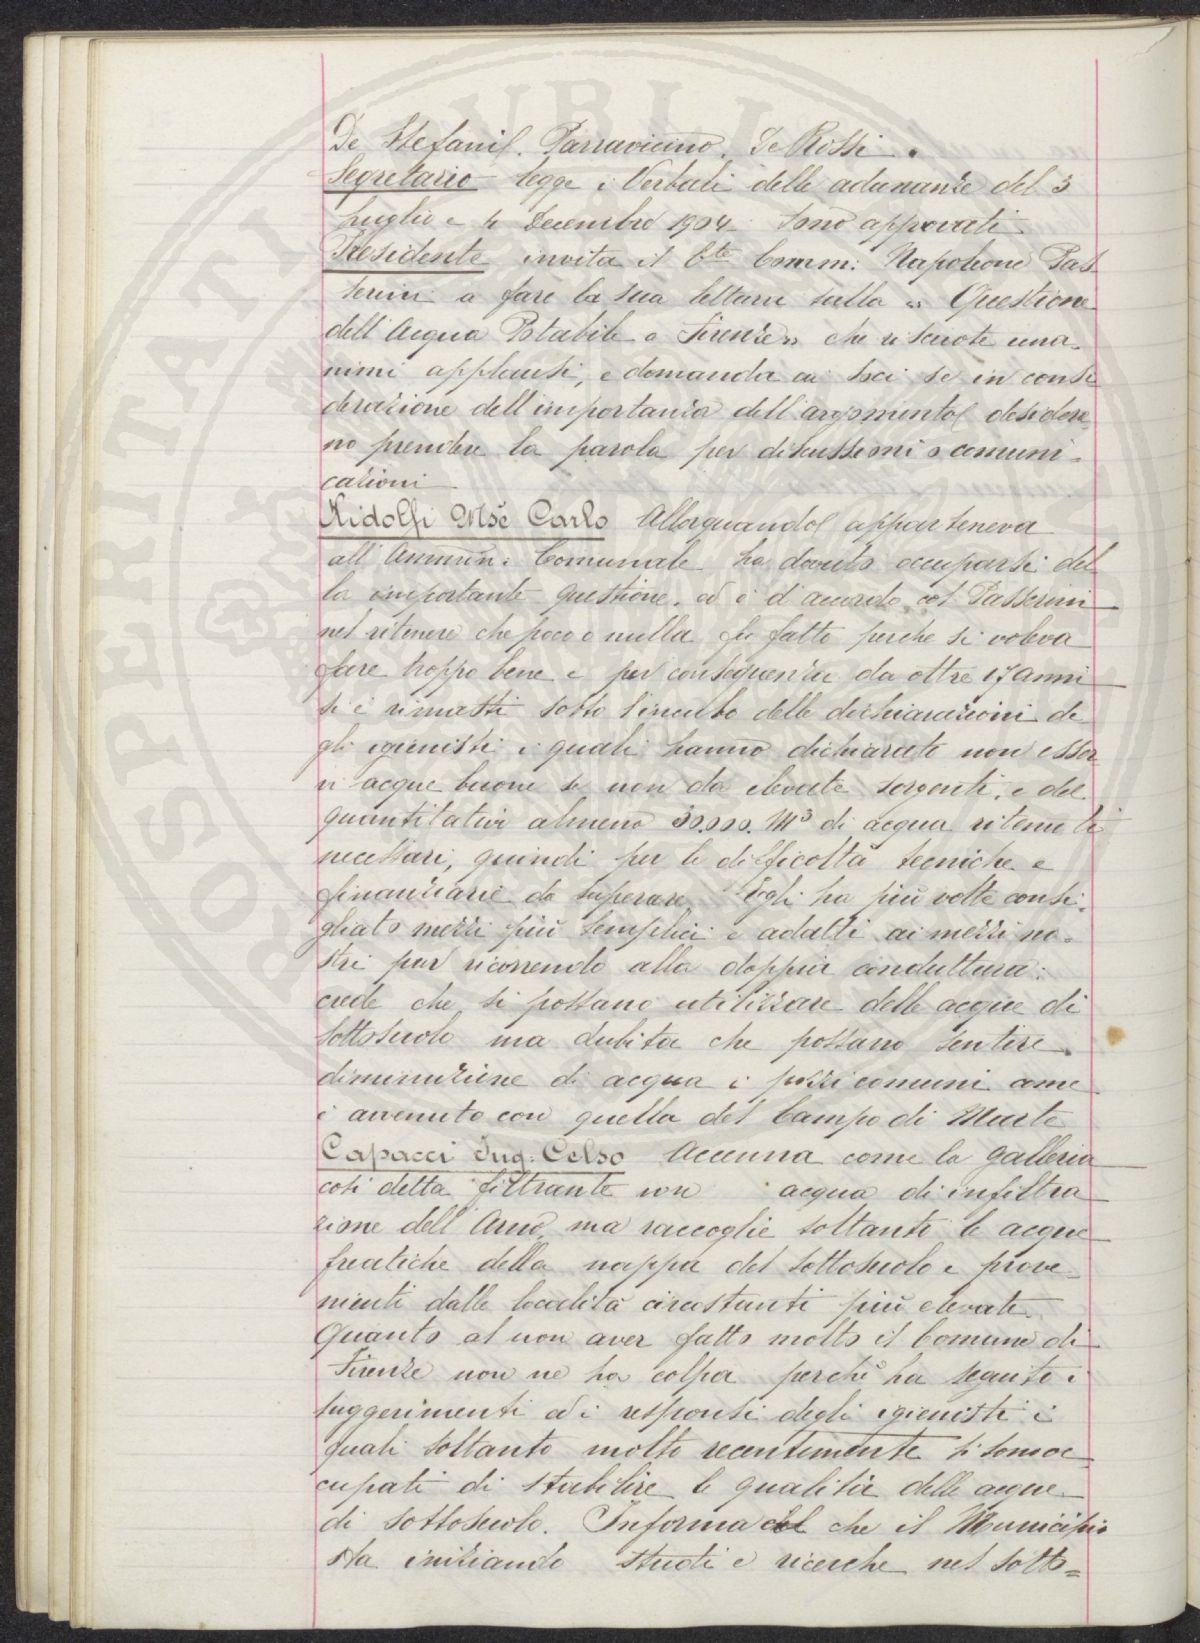 De Stefani. Parravicino. De Rossi.
Segretario legge i Verbali delle adunanze del 3
Luglio e 4 Decembre 1904. Sono approvati
Presidente invita il Cte Comm: Napoleone Pas
serini a fare la sua lettura sulla « Questione
dell'Acqua Potabile a Firenze » che riscuote una-
nimi applausi, e domanda ai soci se in consi
derazione dell'importanza dell'argomento desidera
no prendere la parola per discussioni o comuni-
cazioni
Ridolfi Mse Carlo Allorquando apparteneva
all'Ammin: Comunale ha dovuto occuparsi del
la importante questione. ed è d'accordo col Passerini
nel ritenere che poco o nulla fu fatto perche si voleva
fare troppo bene e per conseguenza da oltre 17 anni
si è rimasti sotto l'incubo delle dichiarazioni de
gli igienisti i quali hanno dichiarato non esser
vi acque buone se non da elevate sorgenti, e del
quantitativi almeno 30.000. M3 di acqua ritenuti
necessari, quindi per le difficoltà tecniche e
finanziarie da superare. Egli ha più volte consi-
gliato mezzi più semplici e adatti ai mezzi no-
stri pur ricorrendo alla doppia conduttura:
crede che si possano utilizzare delle acque di
sottosuolo ma dubita che possano sentire
diminuzione di acqua i pozzi comuni come
è avvenuto con quella del Campo di Marte
Capacci Ing. Celso Accenna come la galleria
così detta filtrante non acqua di infiltra
zione dell'Arno, ma raccoglie soltanto le acque
freatiche della nappa del sottosuolo e prove-
nienti dalle località circostanti più elevate.
Quanto al non aver fatto molto il Comune di
Firenze non ne ha colpa perchè ha seguito i
suggerimenti ed i responsi degli igienisti i
quali soltanto molto recentemente si sono oc
cupati di stabilire le qualità delle acque
di sottosuolo. Informa che il Municipio
sta iniziando studi e ricerche nel sotto=
PROSPERITATI PUBLI